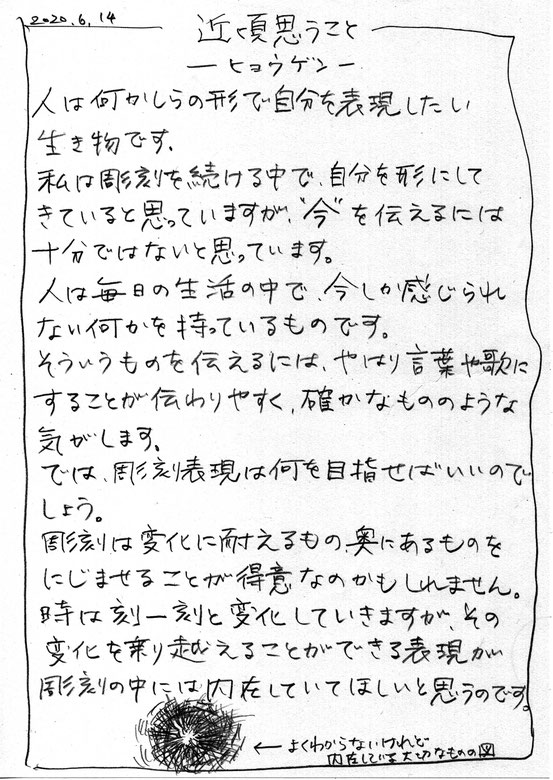 2020.6.14
近頃思うこと
ーヒョウゲンー
人は何かしらの形で自分を表現したい
生き物です。
私は彫刻を続ける中で、自分を形にして
きていると思っていますが、"今"を伝えるには
十分ではないと思っています。
人は毎日の生活の中で、今しか感じられ
ない何かを持っているものです。
そういうものを伝えるには、やはり言葉や歌に
することが伝わりやすく、確かなもののような
気がします。
では、彫刻表現は何を目指せばいいので
しょう。
彫刻は変化に耐えるもの、奥にあるものを
にじませることが得意なのかもしれません。
時は刻一刻と変化していきますが、その
変化を乗り越えることができる表現が
彫刻の中には内在していてほしいと思うのです。
←よくわからないけれど
内在している大切なものの図